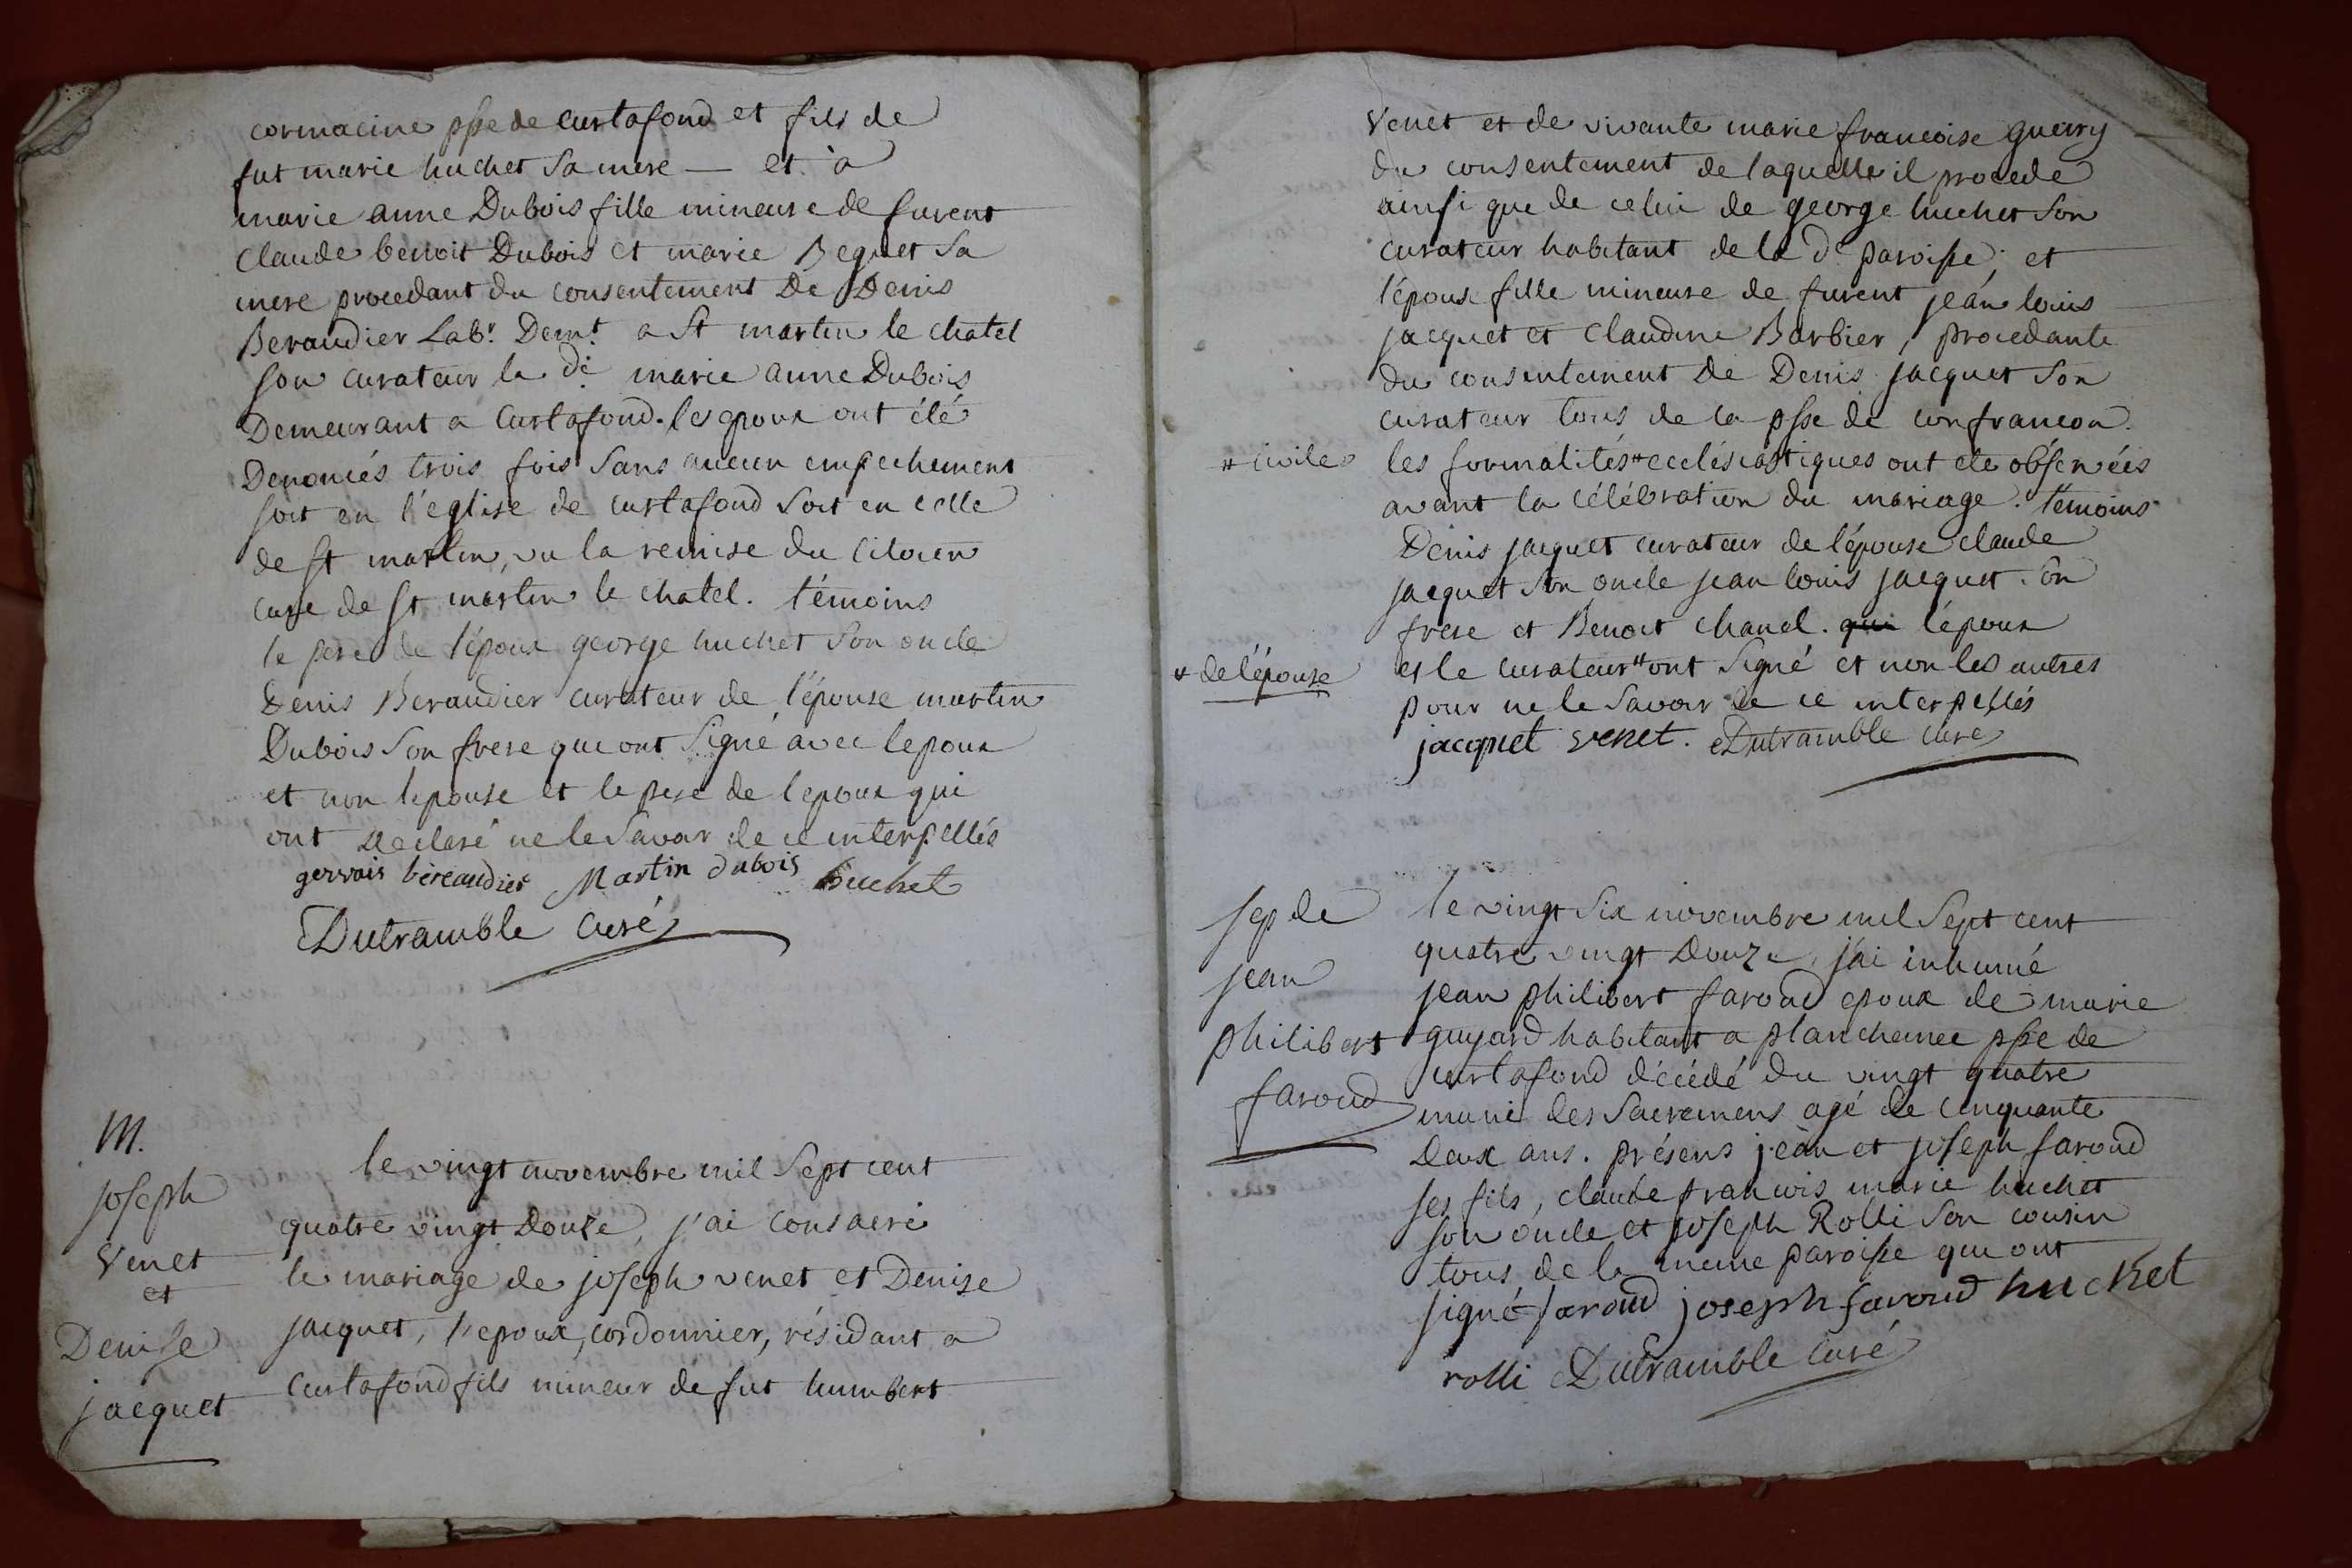 cormacine psse de curtafond et fils de
fut marie huchet sa mere — et à
marie anne Dubois fille mineure de furent
claude benoit Dubois et marie Beguet sa
mere procedant du consentement De Denis
Beraudier Labr. Demt. a St martin le chatel
son curateur la de marie anne Dubois
Demeurant a Curtafond. les epoux ont été
Denoncés trois fois sans aucun empechement
soit en l'eglise de curtafond soit en celle
de st martin, vu la remise du citoien
cure de st martin le chatel. témoins
le pere de l'époux george huchet son oncle
Denis Beraudier curateur de l'épouse martin
Dubois son frere qui ont signé avec lepoux
et non lepouse et le pere de lepoux qui
ont declaré ne le savoir de ce interpellés
gervais béreaudier Martin dubois huchet
Dutramble curé
M.
joseph
Venet
et
Denise
jacquet
le vingt novembre mil sept cent
quatre vingt Douze, j'ai consacré
le mariage de joseph venet et Denise
jacquet, l'epoux, cordonnier, résidant a
Curtafond fils mineur de fut humbert
Venet et de vivante marie francoise guerry
du consentement de laquelle il procede
ainsi que de celui de george huchet son
curateur habitant de la de paroisse, et
l'épouse fille mineure de furent jean louis
jacquet et claudine Barbier, procedante
du consentement De Denis jacquet son
curateur tous de la psse de confrancon.
* civiles
les formalités * ecclésiastiques ont ete observées
avant la célébration du mariage. témoins
Denis jacquet curateur de l'épouse claude
jacquet son oncle jean louis jacquet son
frere et Benoit chanel. qui l'époux
* de l'épouse
et le curateur * ont signé et non les autres
pour ne le savoir de ce interpellés
jacquet venet. Dutramble curé
sep de
jean
philibert
faroud
le vingt six novembre mil sept cent
quatre vingt Douze, j'ai inhumé
jean philibert faroud epoux de marie
guyard habitant a planchemee psse de
curtafond décédé du vingt quatre
muni des sacremens agé de cinquante
deux ans. présens jean et joseph faroud
ses fils, claude francois marie huchet
son oncle et joseph Rolli son cousin
tous de la meme paroisse qui ont
signé faroud joseph faroud huchet
rolli Dutramble curé